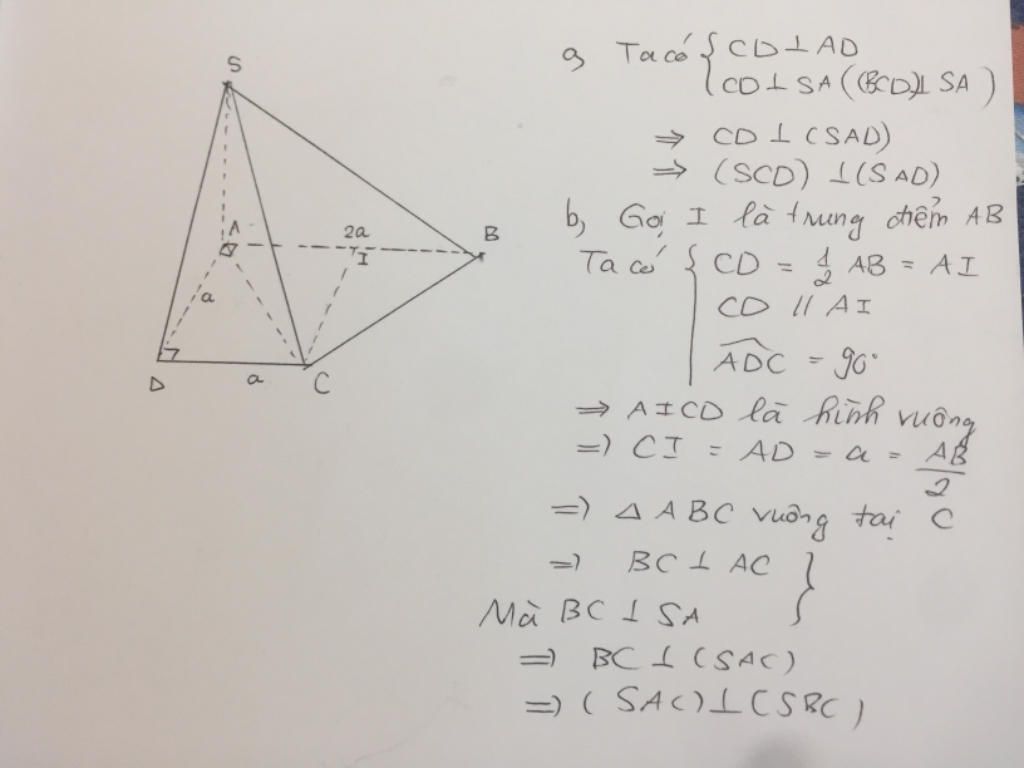 S
A
2a
B
I
a
D
a
C
a, Ta có { CD ⊥ AD
CD ⊥ SA ((BCD) ⊥ SA)
⇒ CD ⊥ (SAD)
⇒ (SCD) ⊥ (SAD)
b, Gọi I là trung điểm AB
Ta có { CD = 1/2 AB = AI
CD // AI
ADC = 90°
⇒ AICD là hình vuông
=> CI = AD = a = AB/2
=> Δ ABC vuông tại C
=> BC ⊥ AC }
Mà BC ⊥ SA
=> BC ⊥ (SAC)
=> (SAC) ⊥ (SBC)